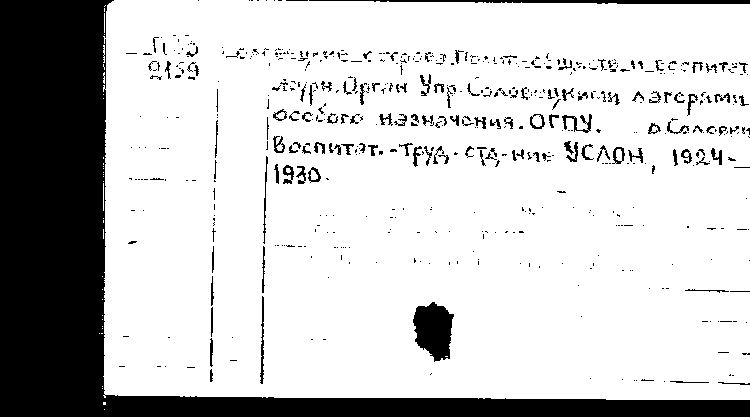 2159 Соловецкие острова. Полит.-обществ. и воспитат.
журн. Орган Упр. Соловецкими лагерями
особого назначения. ОГПУ. о. Соловки
Воспитат.-труд. отд-ние УСЛОН, 1924-
1930.